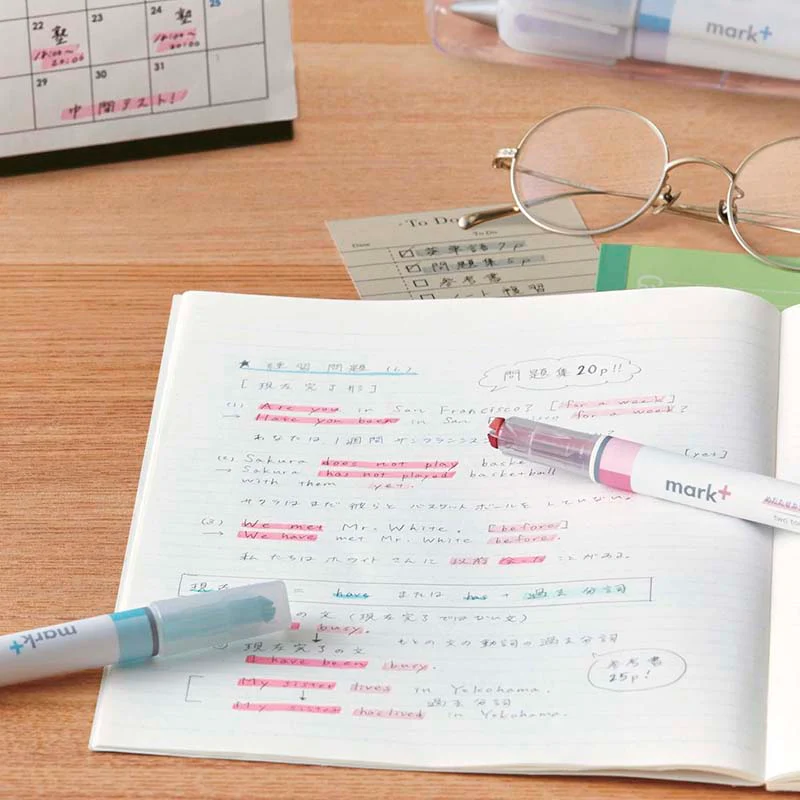 22 塾 23 24 塾 25
18:00~ 20:00 18:00~ 20:00
29 30 31 1
中間テスト!
mark+
To Do
Date To Do
英単語 7p
問題集 5p
参考書
ノート 復習
★ 練習問題 (1)
問題集 20p!!
[現在完了形]
(1) Are you in San Francisco? [for a week]
→ Have you been in San for a week?
あなたは、1週間 サンフランシス
(2) Sakura does not play baske [yet]
→ Sakura has not played basketball
with them yet.
サクラはまだ 彼らと バスケットボールを していない。
(3) We met Mr. White. [before]
→ We have met Mr. White before.
私たちは ホワイトさんに 以前 会った ことがある。
現 = have または has + 過去分詞
の文 (現在完了ではない文)
busy.
現在完了の文 もとの文の動詞の過去分詞
I have been busy.
参考書
25p!
My sister lives in Yokohama.
↓ 過去分詞
My sister has lived in Yokohama.
mark+
TWO TO
mark+